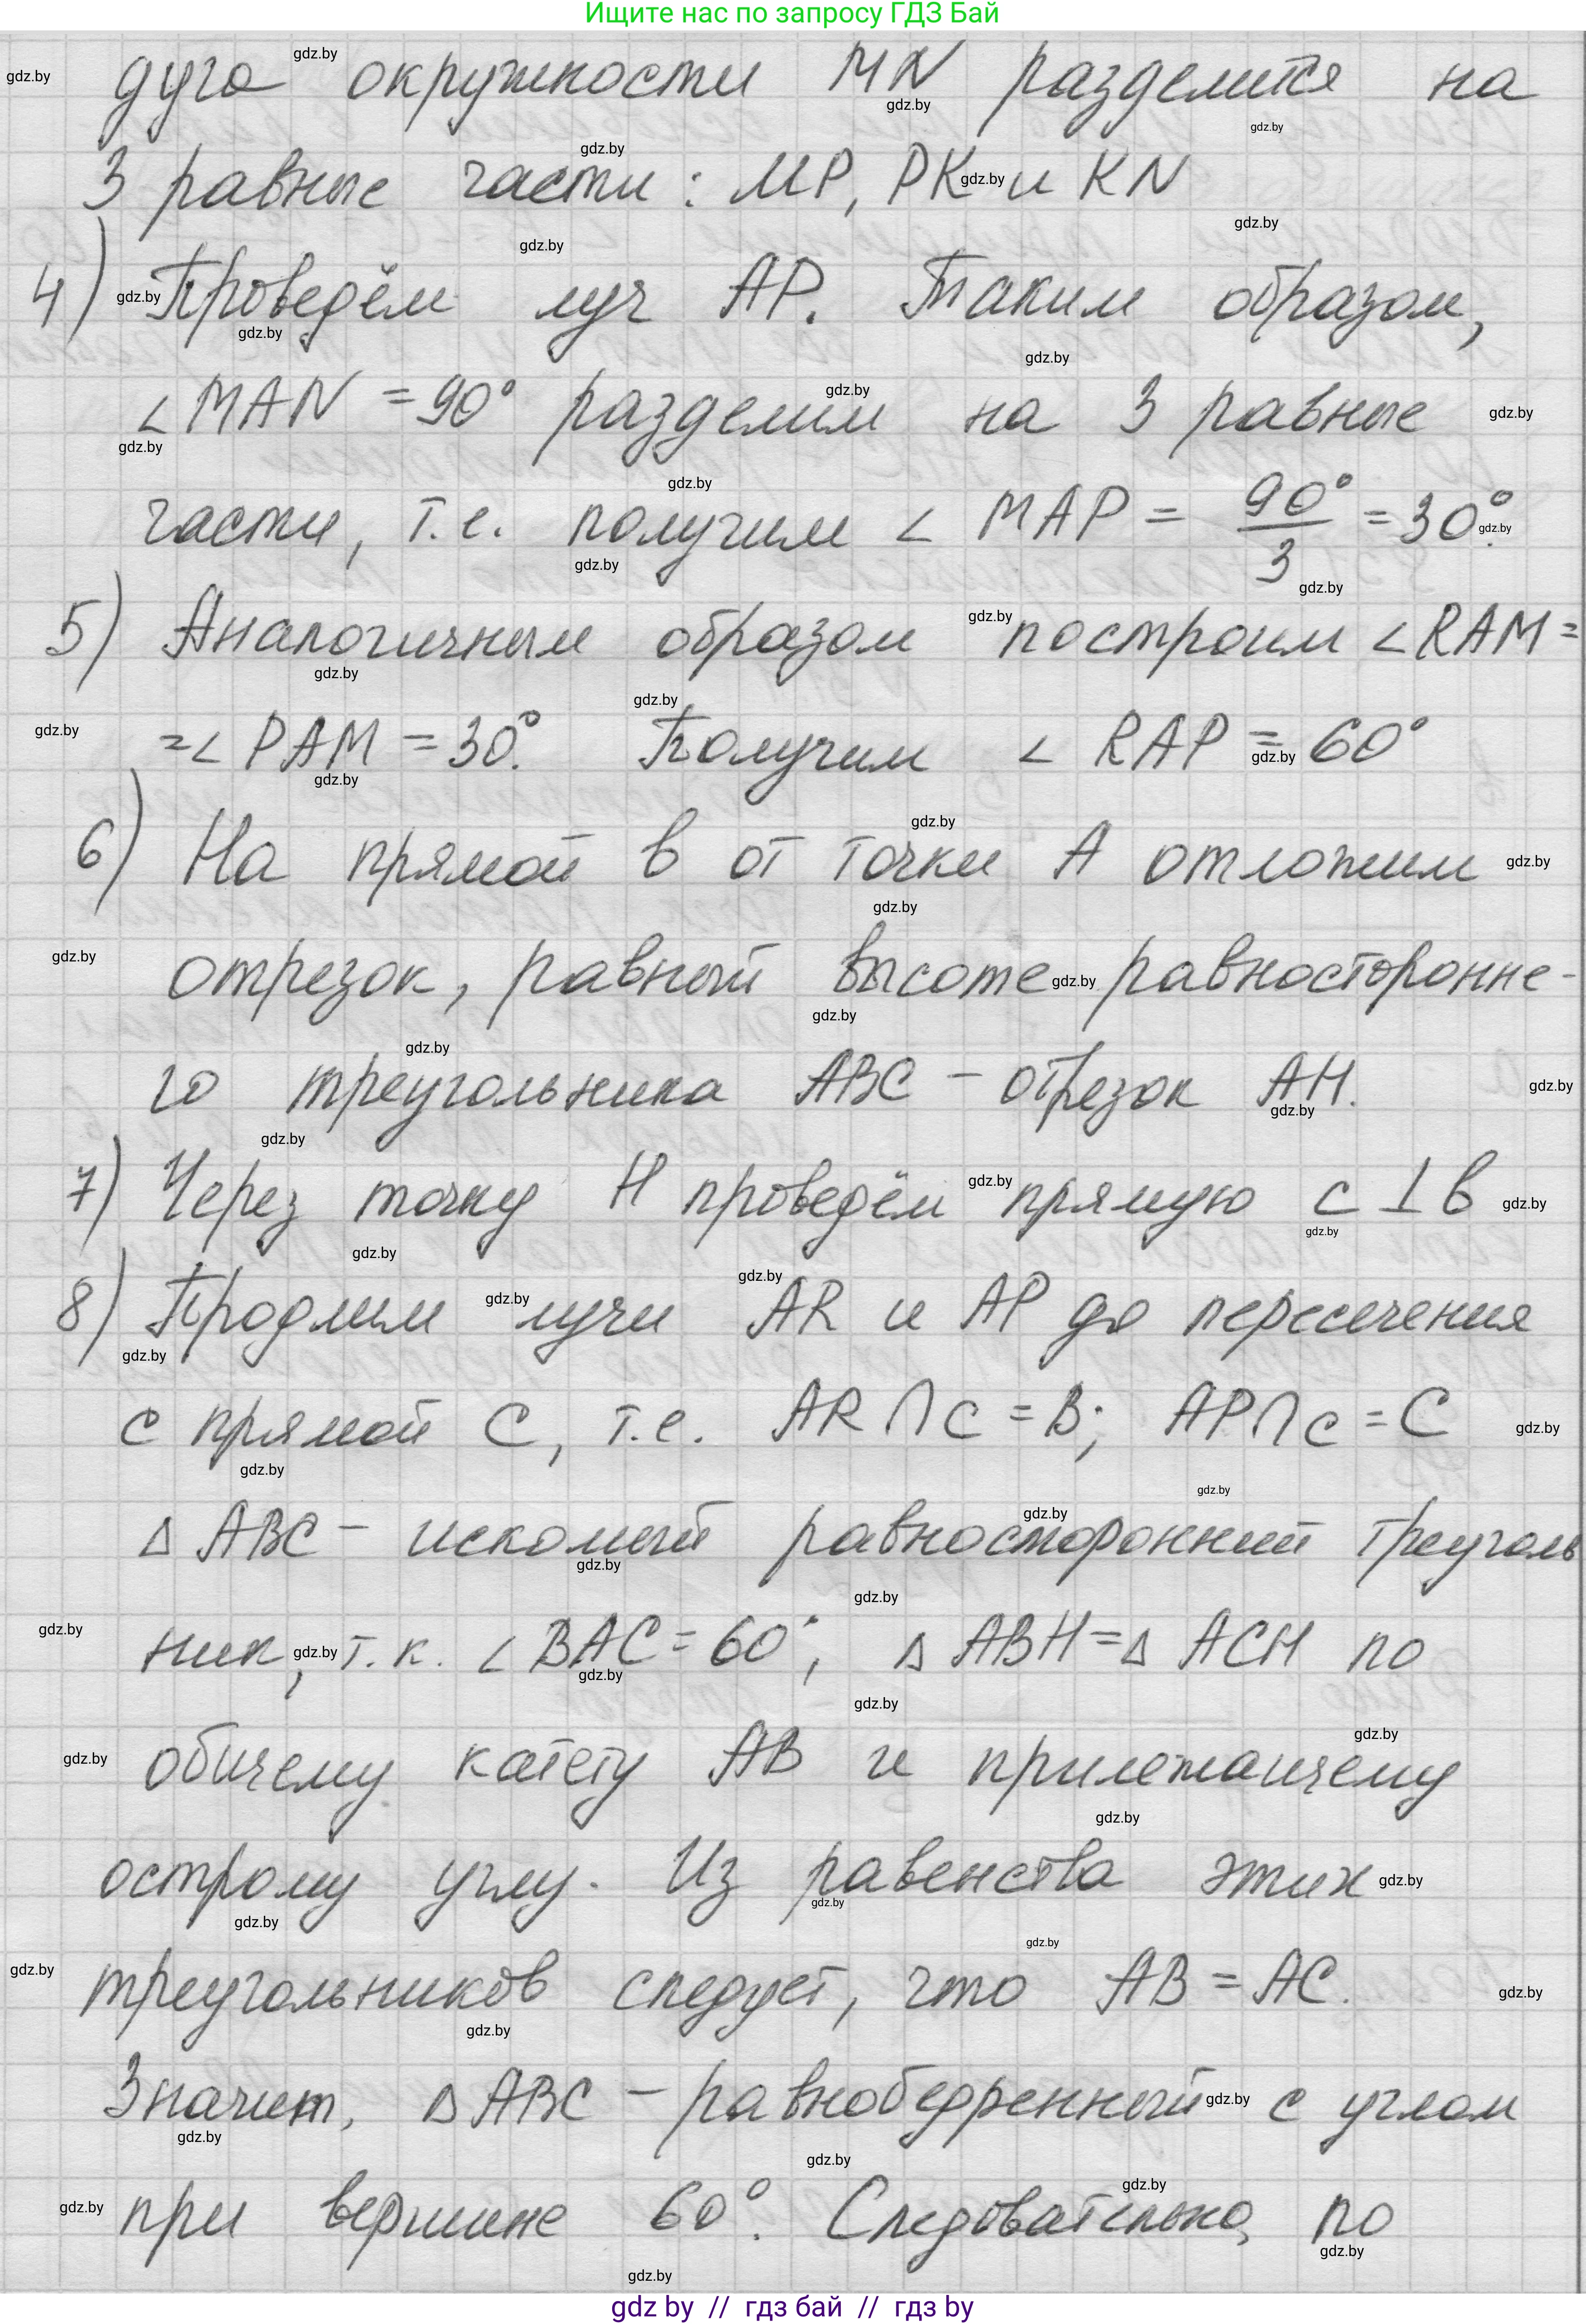 Ищите нас по запросу ГДЗ Бай
дуга окружности MN разделится на
3 равные части: MP, PK и KN
4) Проведём луч AP. Таким образом,
∠MAN = 90° разделим на 3 равные
части, т.е. получим ∠ MAP = 90°/3 = 30°.
5) Аналогичным образом построим ∠RAM =
=∠ PAM = 30°. Получим ∠ RAP = 60°
6) На прямой в от точки A отложим
отрезок, равный высоте равносторонне-
го треугольника ABC - отрезок AH.
7) Через точку H проведём прямую c ⊥ в
8) Продлим лучи AR и AP до пересечения
с прямой C, т.е. AR ∩ c = B; AP ∩ c = C
△ ABC - искомый равносторонний треуголь
ник, т.к. ∠ BAC = 60°, △ ABH = △ ACH по
общему катету AB и прилежащему
острому углу. Из равенства этих
треугольников следует, что AB = AC.
Значит, △ ABC - равнобедренный с углом
при вершине 60°. Следовательно, по
gdz by // гдз бай // гдз by